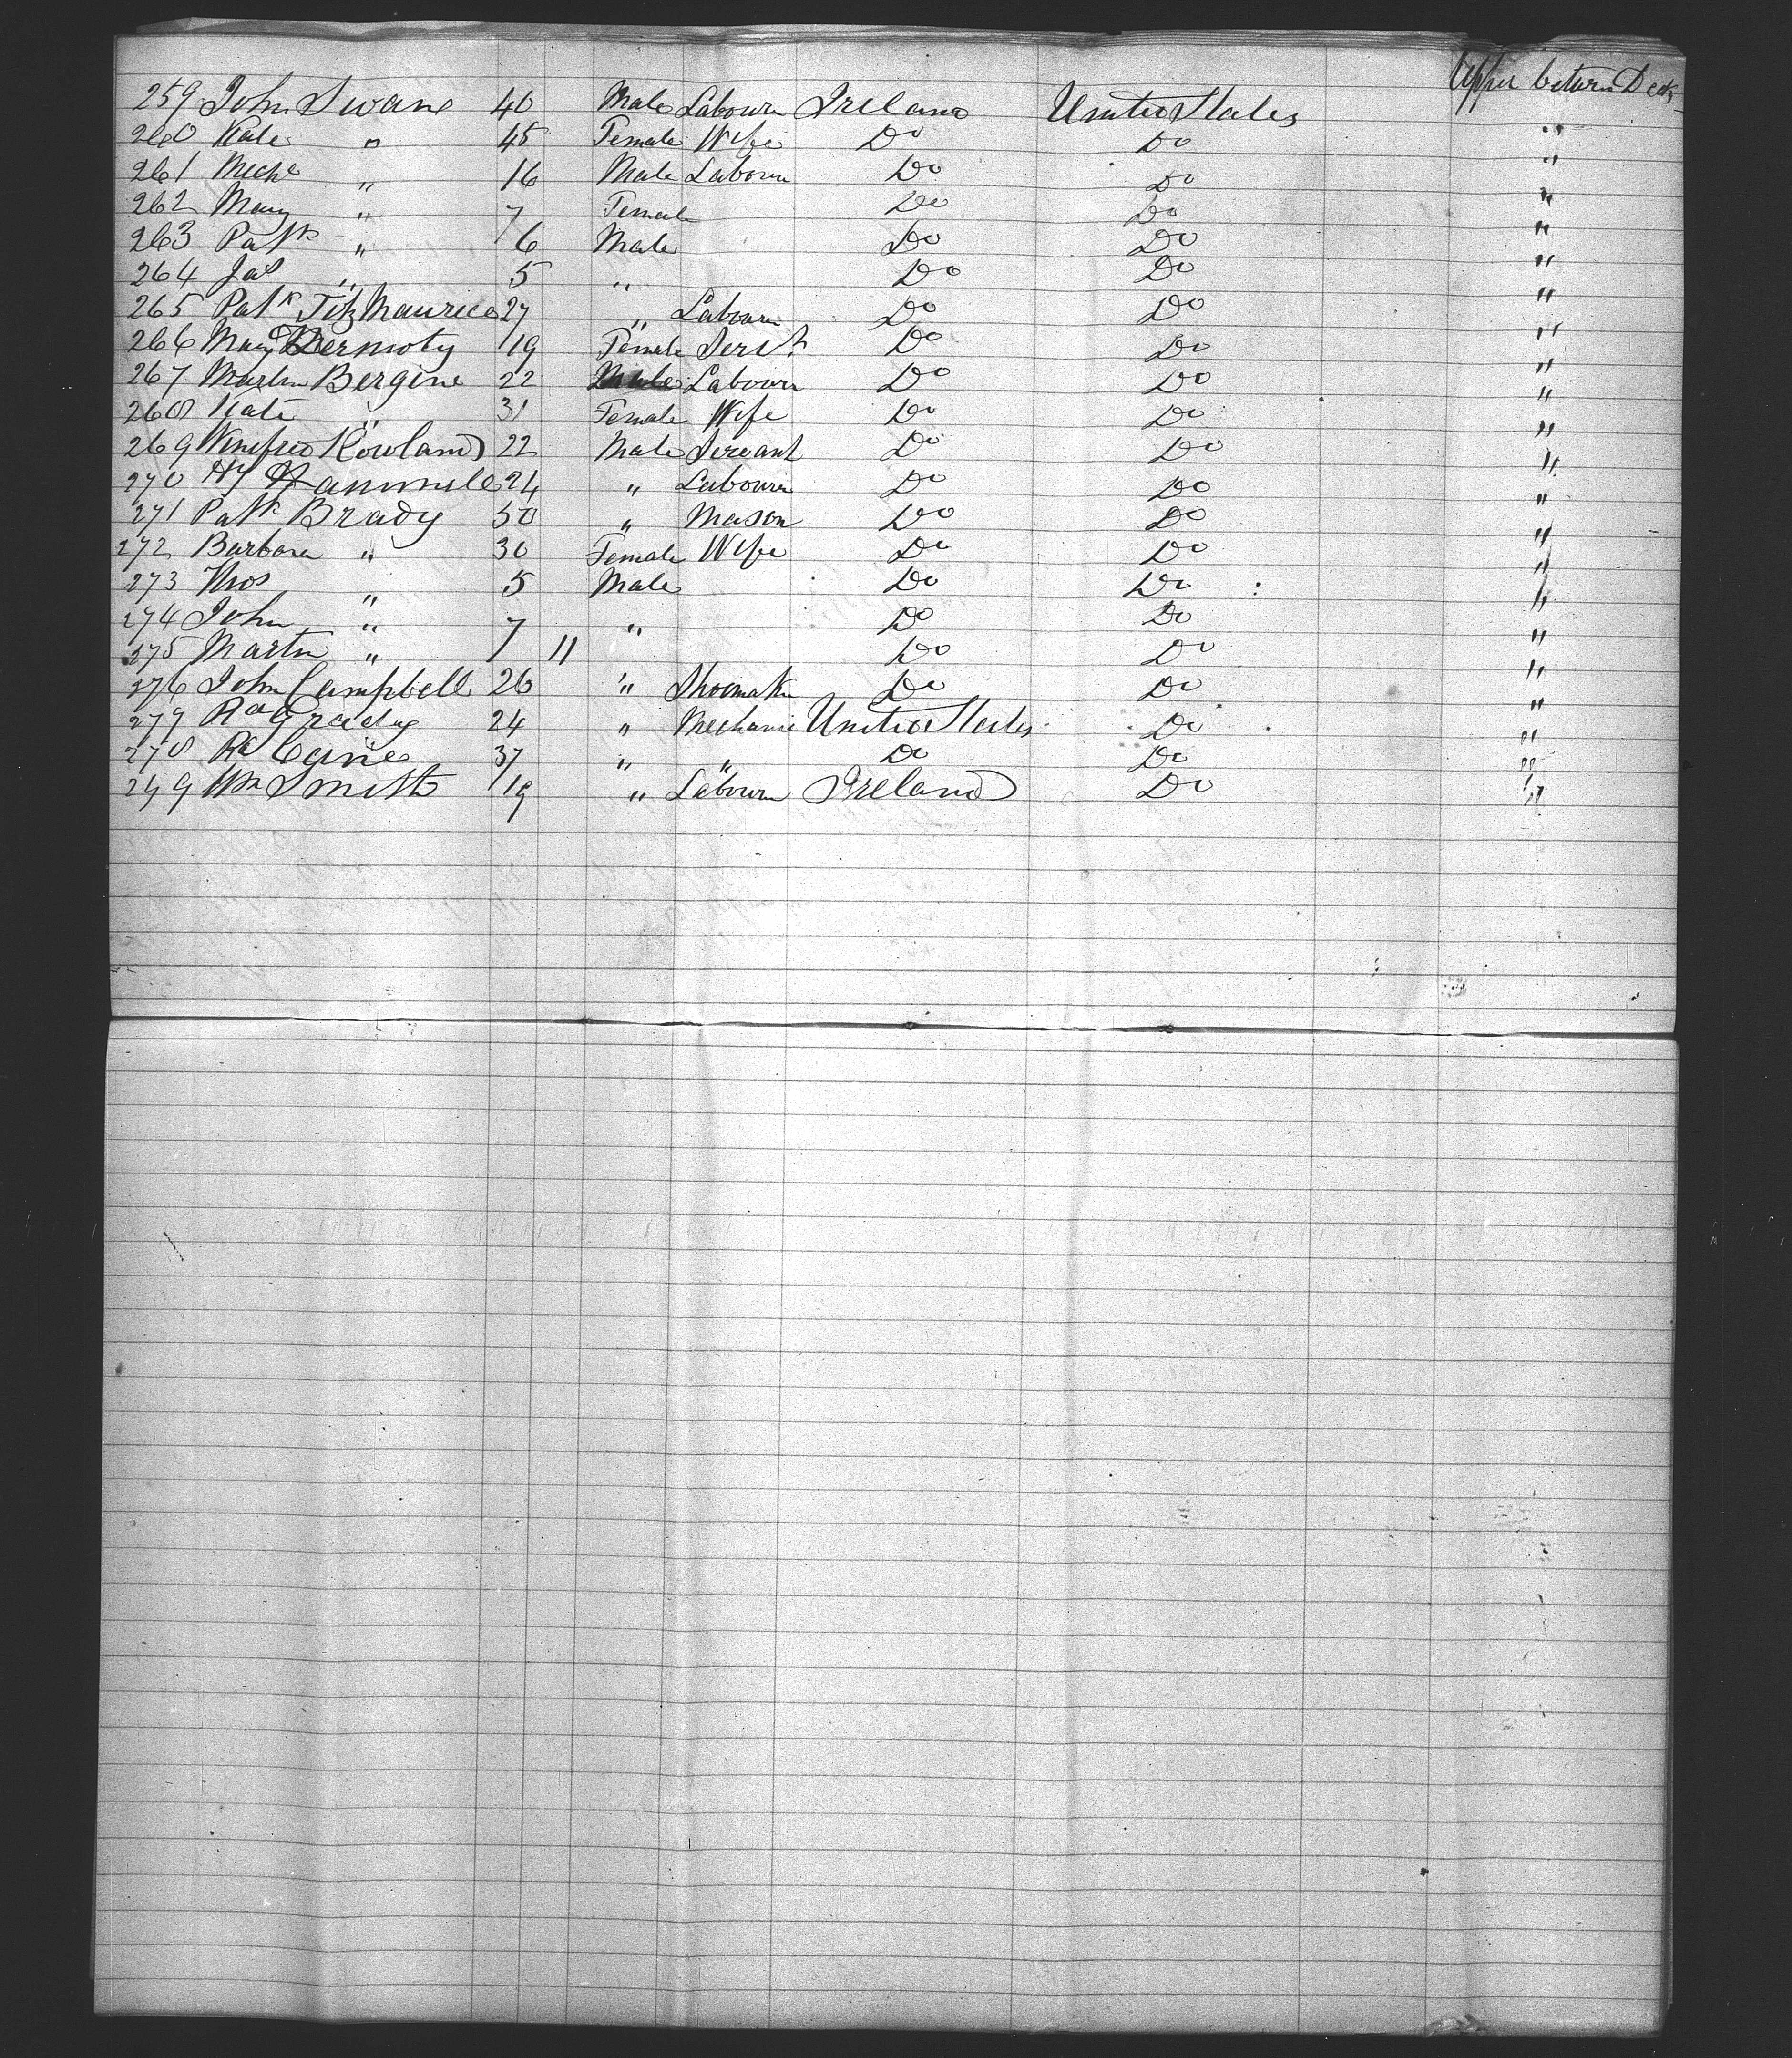 Upper between Decks
259 John Swane 40 Male Labourer Ireland United States
260 Kate " 45 Female Wife Do Do "
261 Miche " 16 Male Labourer Do Do "
262 Mary " 7 Female Do Do "
263 Patk " 6 Male Do Do "
264 Jas " 5 " Do Do "
265 Patk FitzMaurice 27 " Labourer Do Do "
266 Mary Dermoty 19 Female Servt Do Do "
267 Martin Bergine 22 Male Labourer Do Do "
268 Kate " 31 Female Wife Do Do "
269 Winefred Rowland 22 Male Servant Do Do "
270 Hy Hammile 24 " Labourer Do Do "
271 Patk Brady 50 " Mason Do Do "
272 Barbara " 30 Female Wife Do Do "
273 Thos " 5 Male Do Do "
274 John " 7 " Do Do "
275 Martin " 1 " Do Do "
276 John Campbell 26 " Shoemaker Do Do "
279 Rd Grady 24 " Mechanic United States Do "
278 Rd Caine 37 " " Do Do "
249 Wm Smith 19 " Labourer Ireland Do "